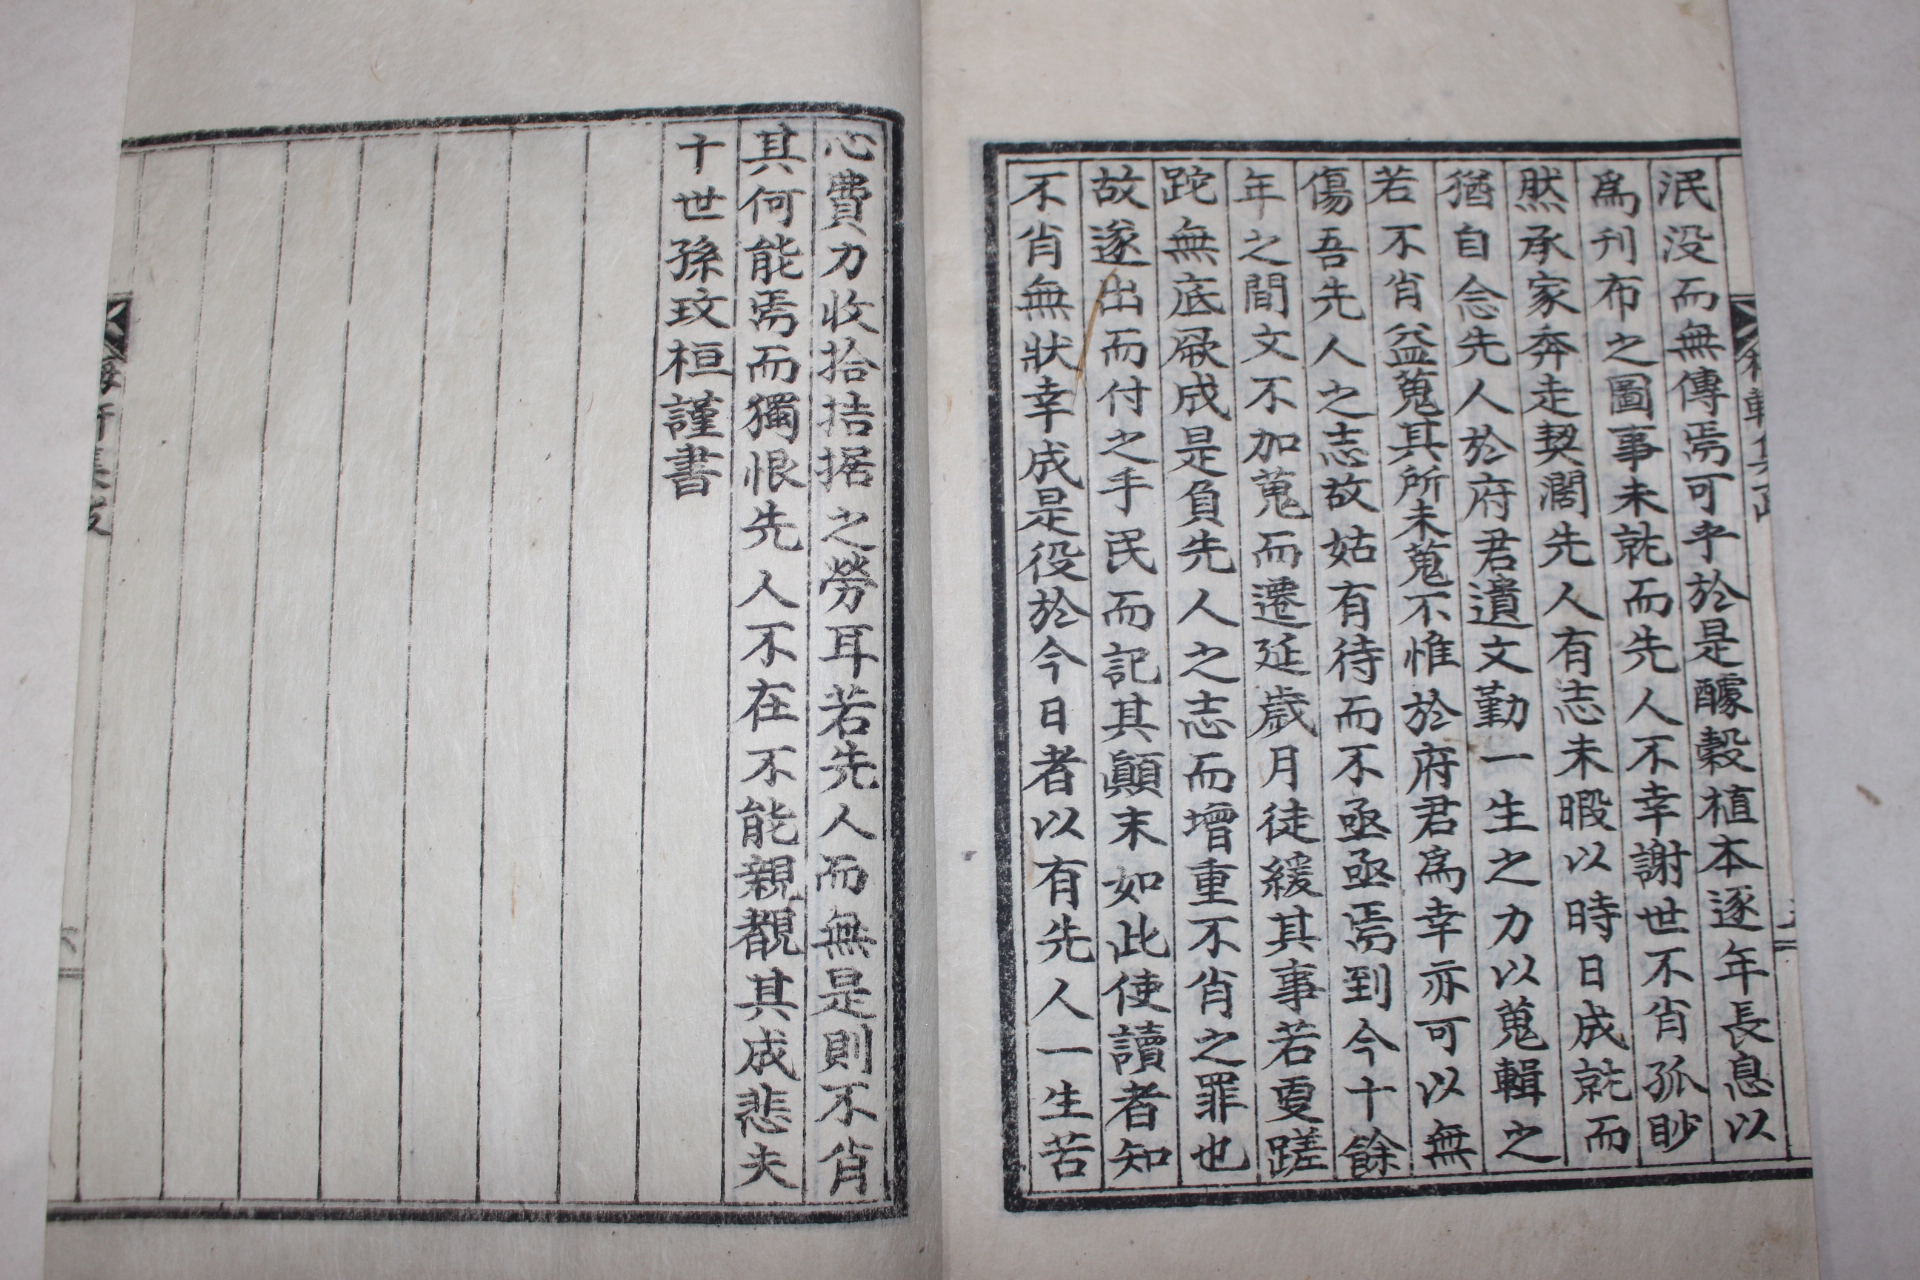 泯没而無傳焉可乎於是醵穀植本逐年長息以
爲刋布之圖事未就而先人不幸謝世不肖孤眇
然承家奔走契濶先人有志未暇以時日成就而
猶自念先人於府君遺文勤一生之力以蒐輯之
若不肖益蒐其所未蒐不惟於府君爲幸亦可以無
傷吾先人之志故姑有待而不亟亟焉到今十餘
年之間文不加蒐而遷延歲月徒緩其事若更蹉
跎無底厥成是負先人之志而增重不肖之罪也
故遂出而付之手民而記其顚末如此使讀者知
不肖無狀幸成是役於今日者以有先人一生苦
心費力收拾拮据之勞耳若先人而無是則不肖
其何能焉而獨恨先人不在不能親覩其成悲夫
十世孫玟桓謹書